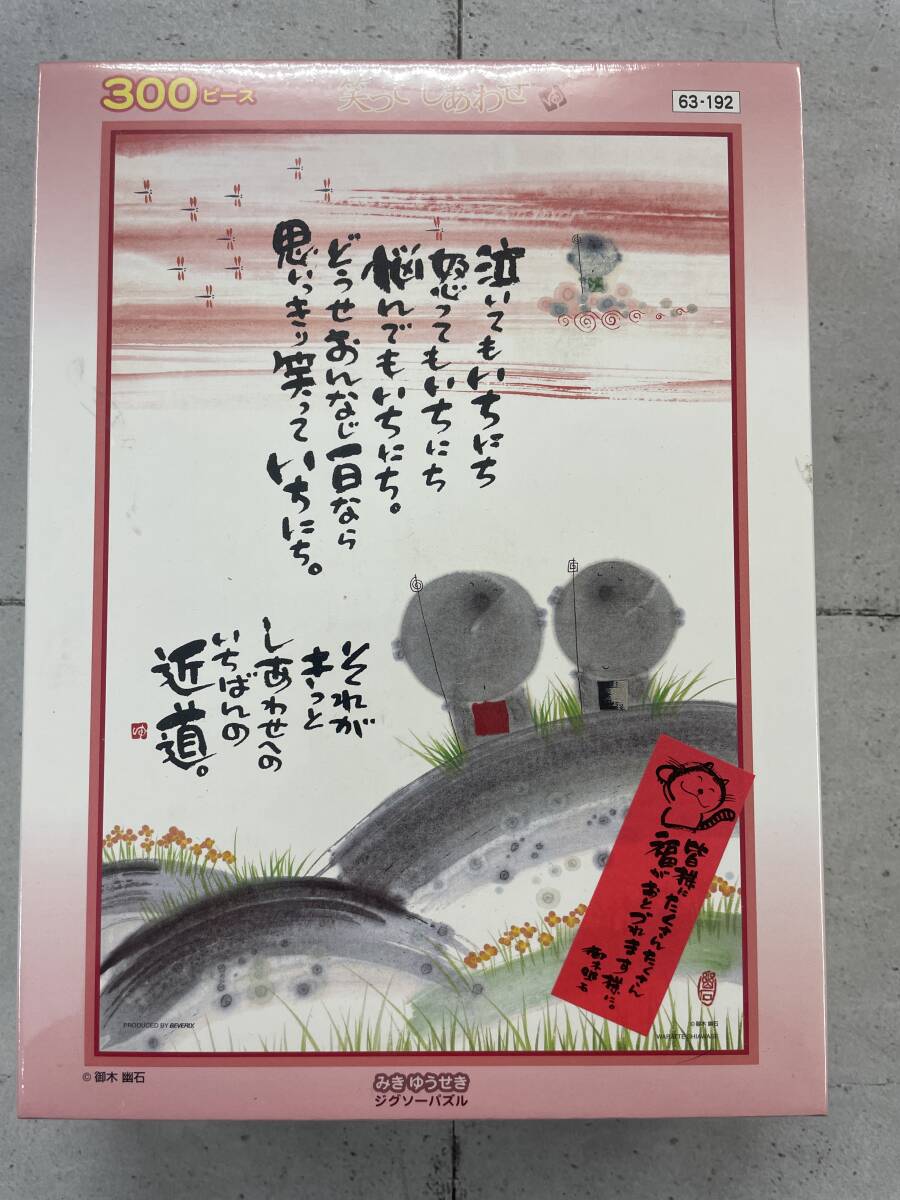 300ピース
笑って しあわせ
63-192
泣いてもいちにち
怒ってもいちにち
悩んでもいちにち。
どうせおんなじ一日なら
思いっきり笑っていちにち。
それが
きっと
しあわせへの
いちばんの
近道。
ゆ
皆様に たくさんたくさん
福が おとづれます様に。
御木幽石
幽石
PRODUCED BY BEVERLY
© 御木 幽石
WARATTE SHIAWASE
© 御木 幽石
みき ゆうせき
ジグソーパズル